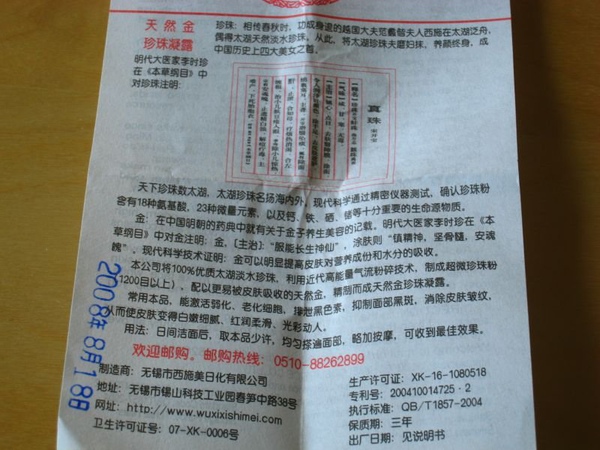 天然金
珍珠凝露
明代大医家李时珍
在《本草纲目》中
对珍珠注明:
珍珠: 相传春秋时, 功成身逸的越国大夫范蠡偕夫人西施在太湖泛舟,
偶得太湖天然淡水珍珠, 从此, 将太湖珍珠夫磨妇抹, 养颜终身, 成
中国历史上四大美女之首。
真珠
天下珍珠数太湖, 太湖珍珠名扬海内外, 现代科学通过精密仪器测试, 确认珍珠粉
含有18种氨基酸, 23种微量元素, 以及钙、铁、硒、锗等十分重要的生命源物质。
金: 在中国明朝的药典中就有关于金子养生美容的记载。明代大医家李时珍在《本
草纲目》中对金注明: 金, [主治]: “服能长生神仙”, 涂肤则“镇精神, 坚骨髓, 安魂
魄”, 现代科学技术证明: 金可以明显提高皮肤对营养成份和水分的吸收。
本公司将100%优质太湖淡水珍珠, 利用近代高能量气流粉碎技术, 制成超微珍珠粉
(1200目以上), 配以更易被皮肤吸收的天然金, 精制而成天然金珍珠凝露。
常用本品, 能激活弱化、老化细胞, 排泄黑色素, 抑制面部黑斑, 消除皮肤皱纹,
从而使皮肤变得白嫩细腻、红润柔滑、光彩动人。
用法: 日间洁面后, 取本品少许, 均匀搽遍面部, 略加按摩, 可收到最佳效果。
欢迎邮购。邮购热线: 0510-88262899
制造商: 无锡市西施美日化有限公司
地址: 无锡市锡山科技工业园春笋中路38号
网址: http://www.wuxixishimei.com
卫生许可证号: 07-XK-0006号
生产许可证: XK-16-1080518
专利号: 200410014725·2
执行标准: QB/T1857-2004
保质期: 三年
出厂日期: 见说明书
2008年8月18日